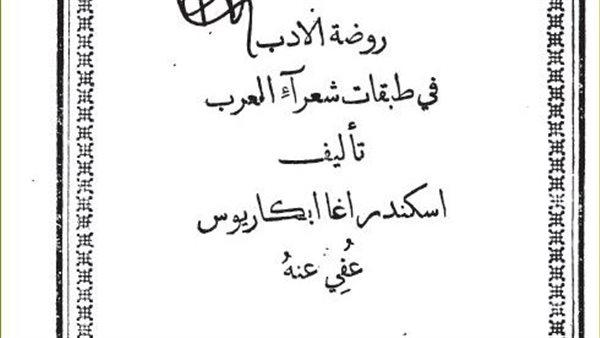 روضة الادب
في طبقات شعرآءِ العرب
تأليف
اسكندر اغا ابكاريوس
عُفِي عنهُ